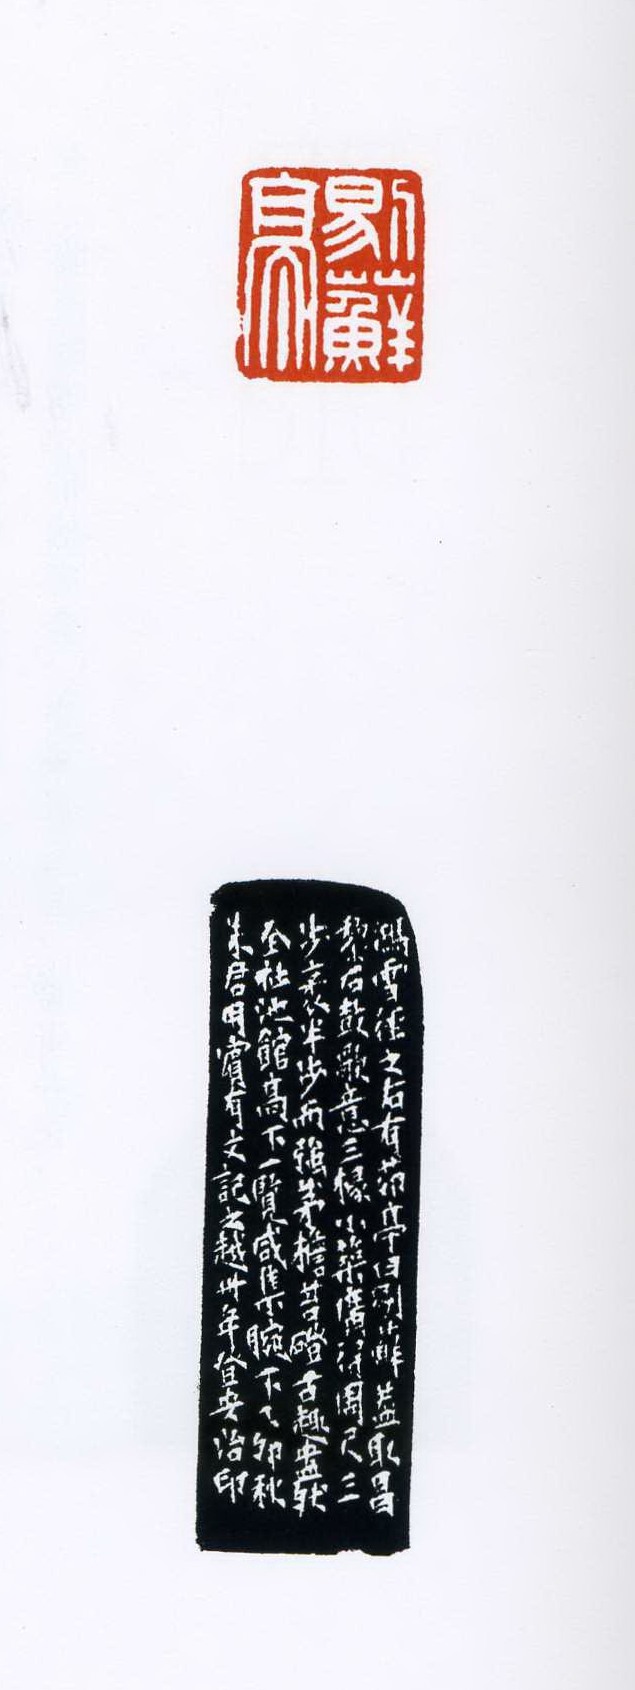 剔蘚
亭
鴻雪徑之右有茆亭曰剔蘚蓋取昌
黎石鼓歌意三椽小築廣得周尺三
步袤半步而強茅檐苔磴古趣盎然
全社池館高下一覽咸集腕下乙卯秋
朱君明有文記之越卅年登安治印